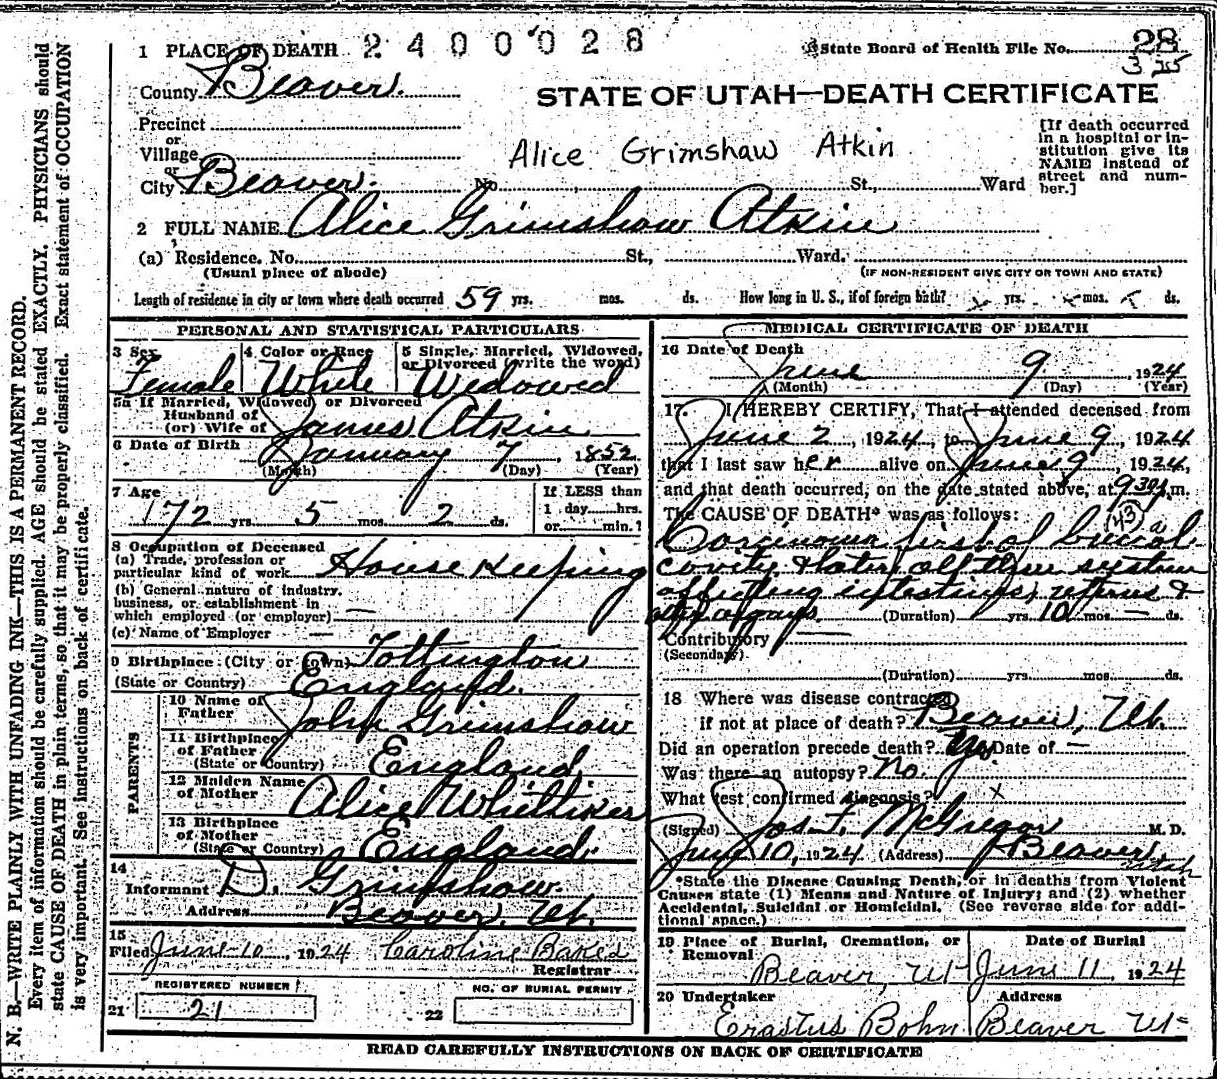 1 PLACE OF DEATH 2400028
State Board of Health File No. 28
County Beaver.
STATE OF UTAH—DEATH CERTIFICATE
Precinct
or
Village
or
City Beaver. No. , St., Ward
[If death occurred in a hospital or institution give its NAME instead of street and number.]
Alice Grimshaw Atkin
2 FULL NAME Alice Grimshaw Atkin
(a) Residence. No. St., Ward.
(Usual place of abode) (IF NON-RESIDENT GIVE CITY OR TOWN AND STATE)
Length of residence in city or town where death occurred 59 yrs. mos. ds. How long in U. S., if of foreign birth? yrs. mos. ds.
PERSONAL AND STATISTICAL PARTICULARS
3 Sex Female
4 Color or Race White
5 Single, Married, Widowed, or Divorced (write the word) Widowed
5a If Married, Widowed or Divorced
Husband of
(or) Wife of James Atkin
6 Date of Birth January 7, 1852
(Month) (Day) (Year)
7 Age 72 yrs. 5 mos. 2 ds.
If LESS than
1 day hrs.
or min.?
8 Occupation of Deceased
(a) Trade, profession or particular kind of work House Keeping
(b) General nature of industry, business, or establishment in which employed (or employer) —
(c) Name of Employer —
9 Birthplace (City or town) Tottington
(State or Country) England.
PARENTS
10 Name of Father John Grimshaw
11 Birthplace of Father
(State or Country) England
12 Maiden Name of Mother Alice Whittiker
13 Birthplace of Mother
(State or Country) England.
14
Informant D. Grimshaw.
Address Beaver, Ut.
15
Filed June 10, 1924 Caroline Baker
Registrar
REGISTERED NUMBER
NO. OF BURIAL PERMIT
21 21
22
MEDICAL CERTIFICATE OF DEATH
16 Date of Death
June 9 1924
(Month) (Day) (Year)
17. I HEREBY CERTIFY, That I attended deceased from
June 2, 1924, to June 9, 1924
that I last saw her alive on June 9, 1924,
and that death occurred, on the date stated above, at 9 30 m.
The CAUSE OF DEATH* was as follows: 43 a
Carcinoma first of buccal
cavity & later all thru system
affecting intestines, uterus &
organs. (Duration) yrs. 10 mos. — ds.
Contributory —
(Secondary)
(Duration) yrs. mos. ds.
18 Where was disease contracted
if not at place of death? Beaver, Ut.
Did an operation precede death? Date of —
Was there an autopsy? No.
What test confirmed diagnosis? x
(Signed) Jos. T. McGregor M. D.
June 10, 1924 (Address) Beaver, Utah
*State the Disease Causing Death, or in deaths from Violent
Causes state (1) Means and Nature of Injury; and (2) whether
Accidental, Suicidal or Homicidal. (See reverse side for addi-
tional space.)
19 Place of Burial, Cremation, or Removal
Beaver, Ut
Date of Burial
June 11 1924
20 Undertaker
Erastus Bohn
Address
Beaver Ut
READ CAREFULLY INSTRUCTIONS ON BACK OF CERTIFICATE
N. B.—WRITE PLAINLY WITH UNFADING INK—THIS IS A PERMANENT RECORD.
Every item of information should be carefully supplied. AGE should be stated EXACTLY. PHYSICIANS should
state CAUSE OF DEATH in plain terms, so that it may be properly classified. Exact statement of OCCUPATION
is very important. See instructions on back of certificate.